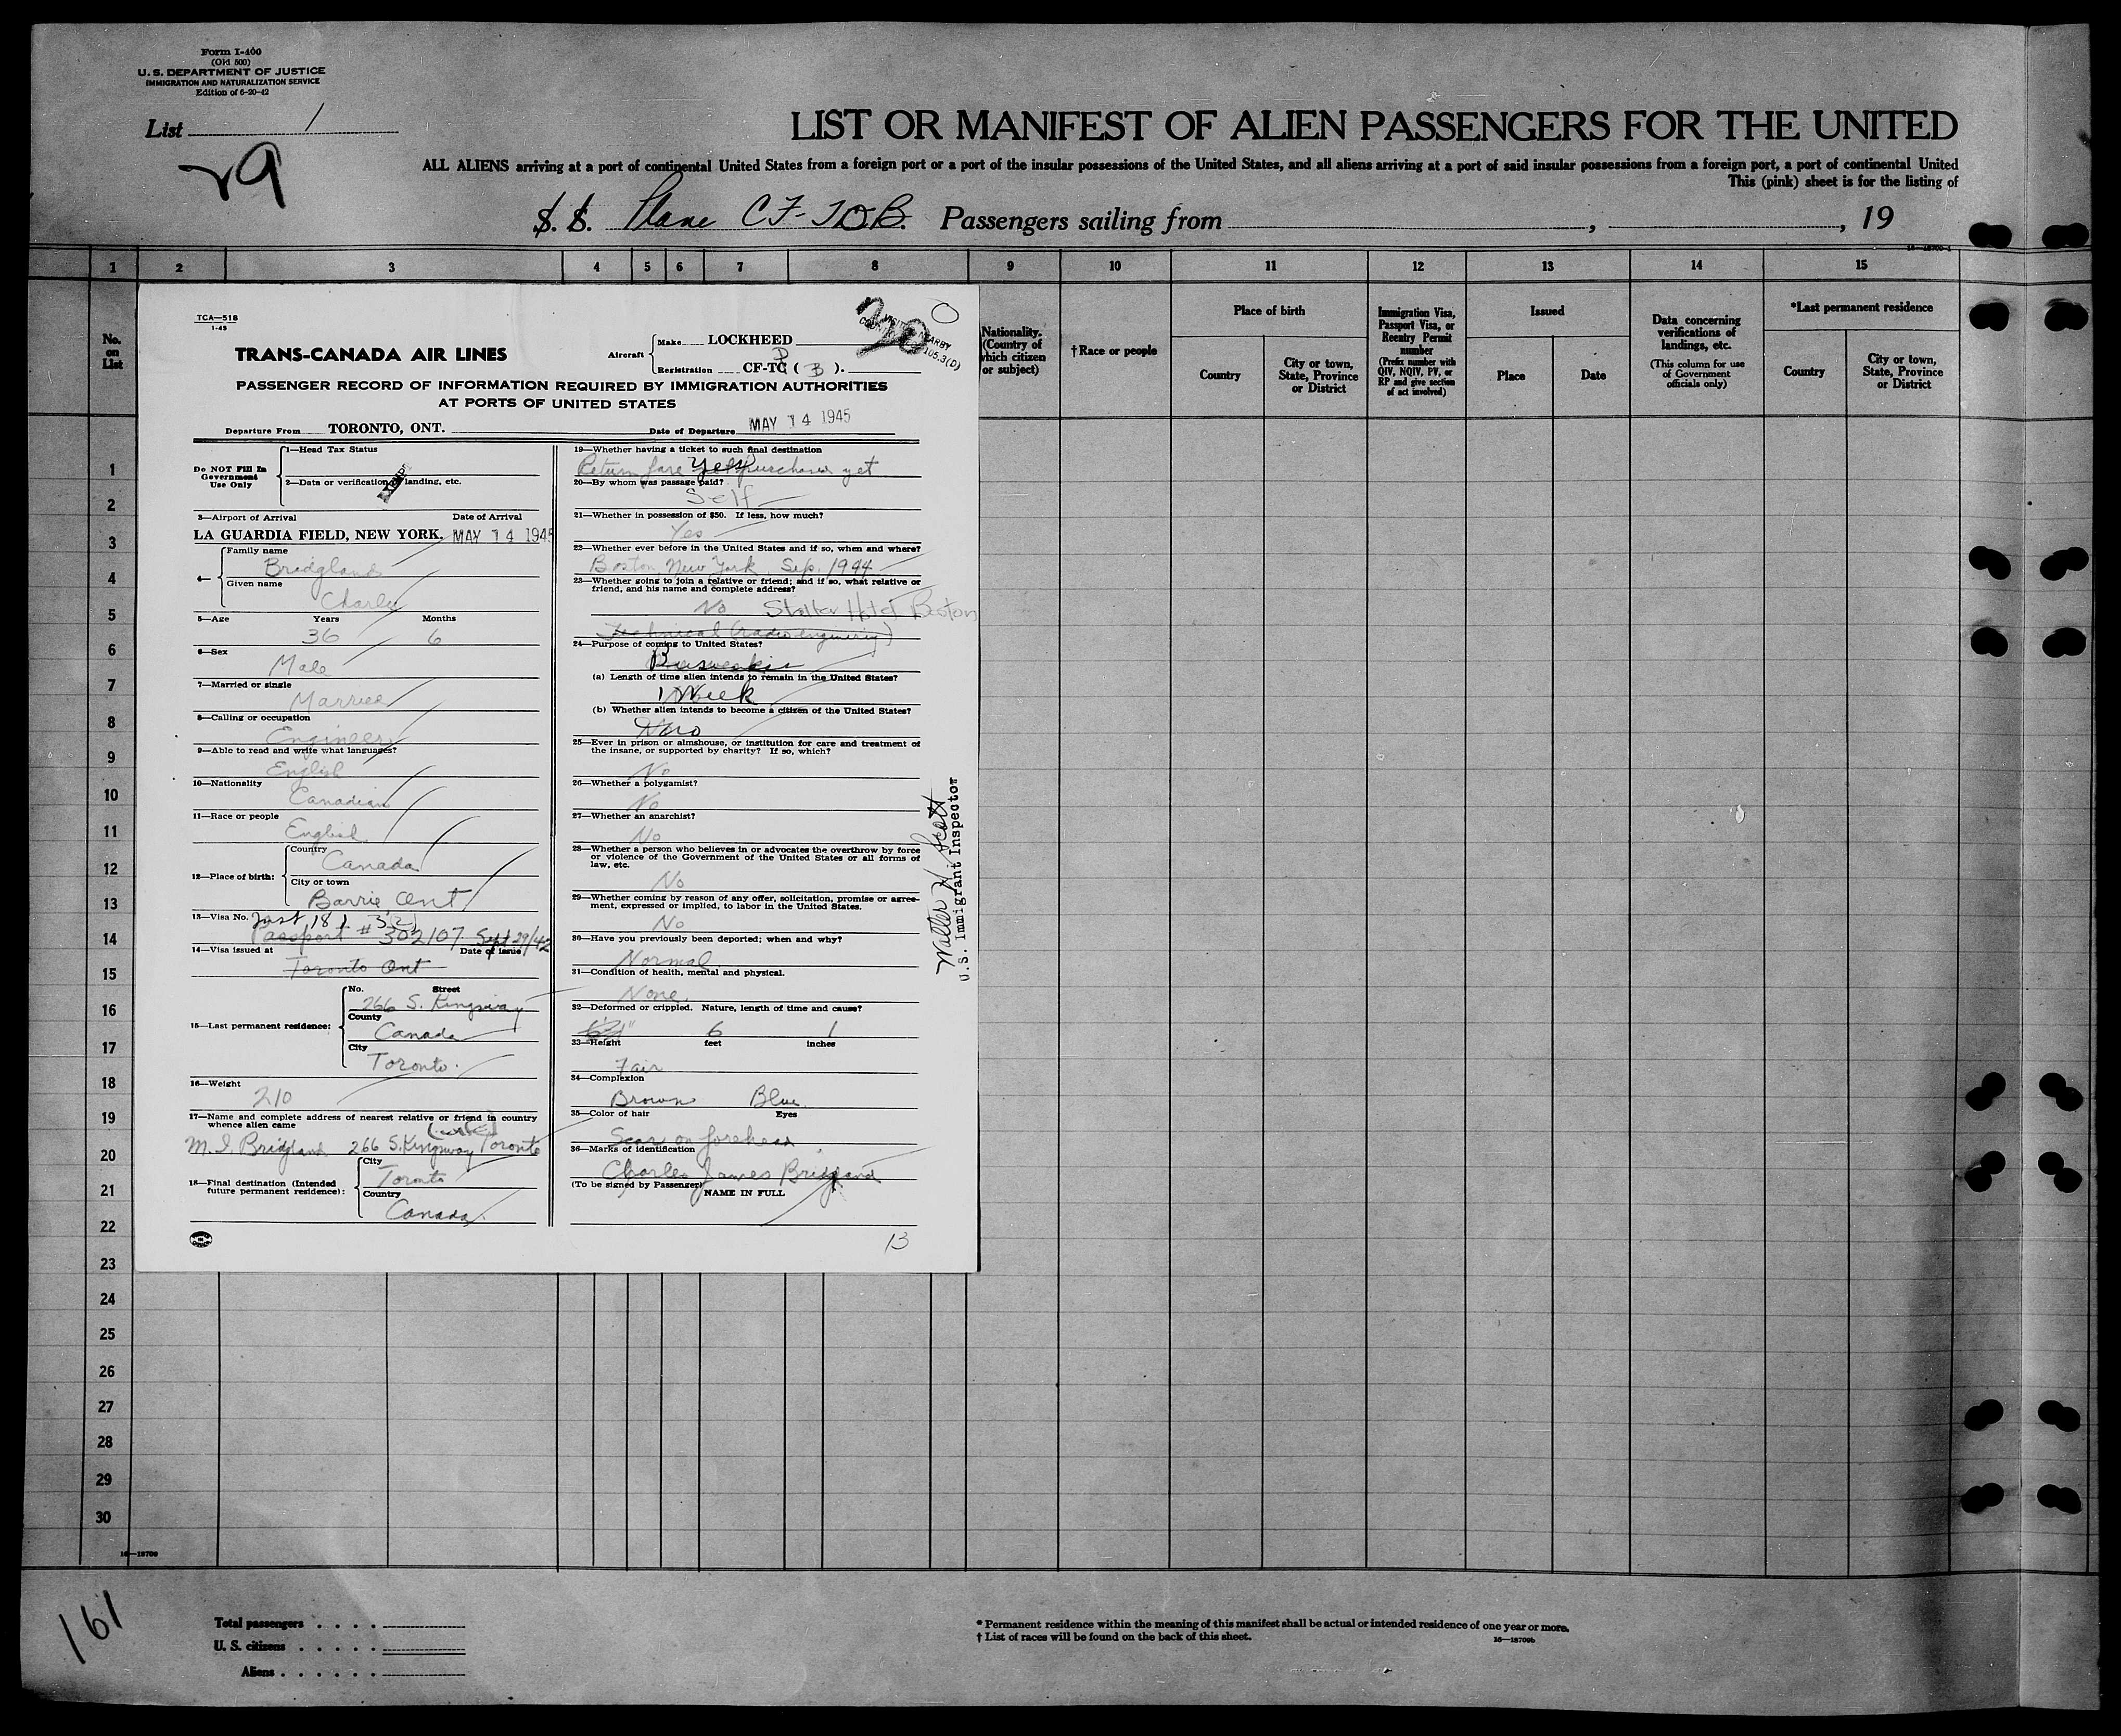 Form I-400
(Old 500)
U. S. DEPARTMENT OF JUSTICE
IMMIGRATION AND NATURALIZATION SERVICE
Edition of 6-20-42
List 1
29
LIST OR MANIFEST OF ALIEN PASSENGERS FOR THE UNITED
ALL ALIENS arriving at a port of continental United States from a foreign port or a port of the insular possessions of the United States, and all aliens arriving at a port of said insular possessions from a foreign port, a port of continental United
This (pink) sheet is for the listing of
S. S. Plane CF-TDB. Passengers sailing from , , 19
16—18700-1
1 2 3 4 5 6 7 8 9 10 11 12 13 14 15
No. on List
Nationality. (Country of which citizen or subject)
† Race or people
Place of birth
Country
City or town, State, Province or District
Immigration Visa, Passport Visa, or Reentry Permit number
(Prefix number with QIV, NQIV, PV, or RP and give section of act involved)
Issued
Place
Date
Data concerning verifications of landings, etc.
(This column for use of Government officials only)
*Last permanent residence
Country
City or town, State, Province or District
TCA—518
1-45
TRANS-CANADA AIR LINES
Aircraft
Make LOCKHEED
Registration CF-TC ( B ).
D
105.3(D)
PASSENGER RECORD OF INFORMATION REQUIRED BY IMMIGRATION AUTHORITIES
AT PORTS OF UNITED STATES
Departure From TORONTO, ONT. Date of Departure MAY 14 1945
Do NOT Fill In Government Use Only
1—Head Tax Status
2—Data or verification of landing, etc.
3—Airport of Arrival Date of Arrival
LA GUARDIA FIELD, NEW YORK. MAY 14 1945
4—
Family name
Bridgland
Given name
Charles
5—Age Years Months
36 6
6—Sex
Male
7—Married or single
Married
8—Calling or occupation
Engineer
9—Able to read and write what languages?
English
10—Nationality
Canadian
11—Race or people
English
12—Place of birth:
Country
Canada
City or town
Barrie Ont
13—Visa No.
Passport # 302107 Sept 29/42
14—Visa issued at Date of issue
Toronto Ont
15—Last permanent residence:
No. Street
266 S. Kingsway
County
Canada
City
Toronto.
16—Weight
210
17—Name and complete address of nearest relative or friend in country
whence alien came
M. I. Bridgland 266 S. Kingsway Toronto
18—Final destination (Intended
future permanent residence):
City
Toronto
Country
Canada
19—Whether having a ticket to such final destination
Return fare Yes purchased yet
20—By whom was passage paid?
Self
21—Whether in possession of $50. If less, how much?
Yes
22—Whether ever before in the United States and if so, when and where?
Boston, New York, Sep. 1944
23—Whether going to join a relative or friend; and if so, what relative or
friend, and his name and complete address?
No Statler Hotel Boston
Technical (radio engineering)
24—Purpose of coming to United States?
Business
(a) Length of time alien intends to remain in the United States?
1 Week
(b) Whether alien intends to become a citizen of the United States?
No
25—Ever in prison or almshouse, or institution for care and treatment of
the insane, or supported by charity? If so, which?
No
26—Whether a polygamist?
No
27—Whether an anarchist?
No
28—Whether a person who believes in or advocates the overthrow by force
or violence of the Government of the United States or all forms of
law, etc.
No
29—Whether coming by reason of any offer, solicitation, promise or agree-
ment, expressed or implied, to labor in the United States.
No
30—Have you previously been deported; when and why?
Normal
31—Condition of health, mental and physical.
None.
32—Deformed or crippled. Nature, length of time and cause?
6 1
33—Height feet inches
Fair
34—Complexion
Brown Blue
35—Color of hair Eyes
Scar on forehead
36—Marks of identification
Charles James Bridgland
(To be signed by Passenger) NAME IN FULL
13
Walter H Scott
U.S. Immigrant Inspector
1
2
3
4
5
6
7
8
9
10
11
12
13
14
15
16
17
18
19
20
21
22
23
24
25
26
27
28
29
30
16—18700
161
Total passengers
U. S. citizens
Aliens
* Permanent residence within the meaning of this manifest shall be actual or intended residence of one year or more.
† List of races will be found on the back of this sheet.
16—18700b